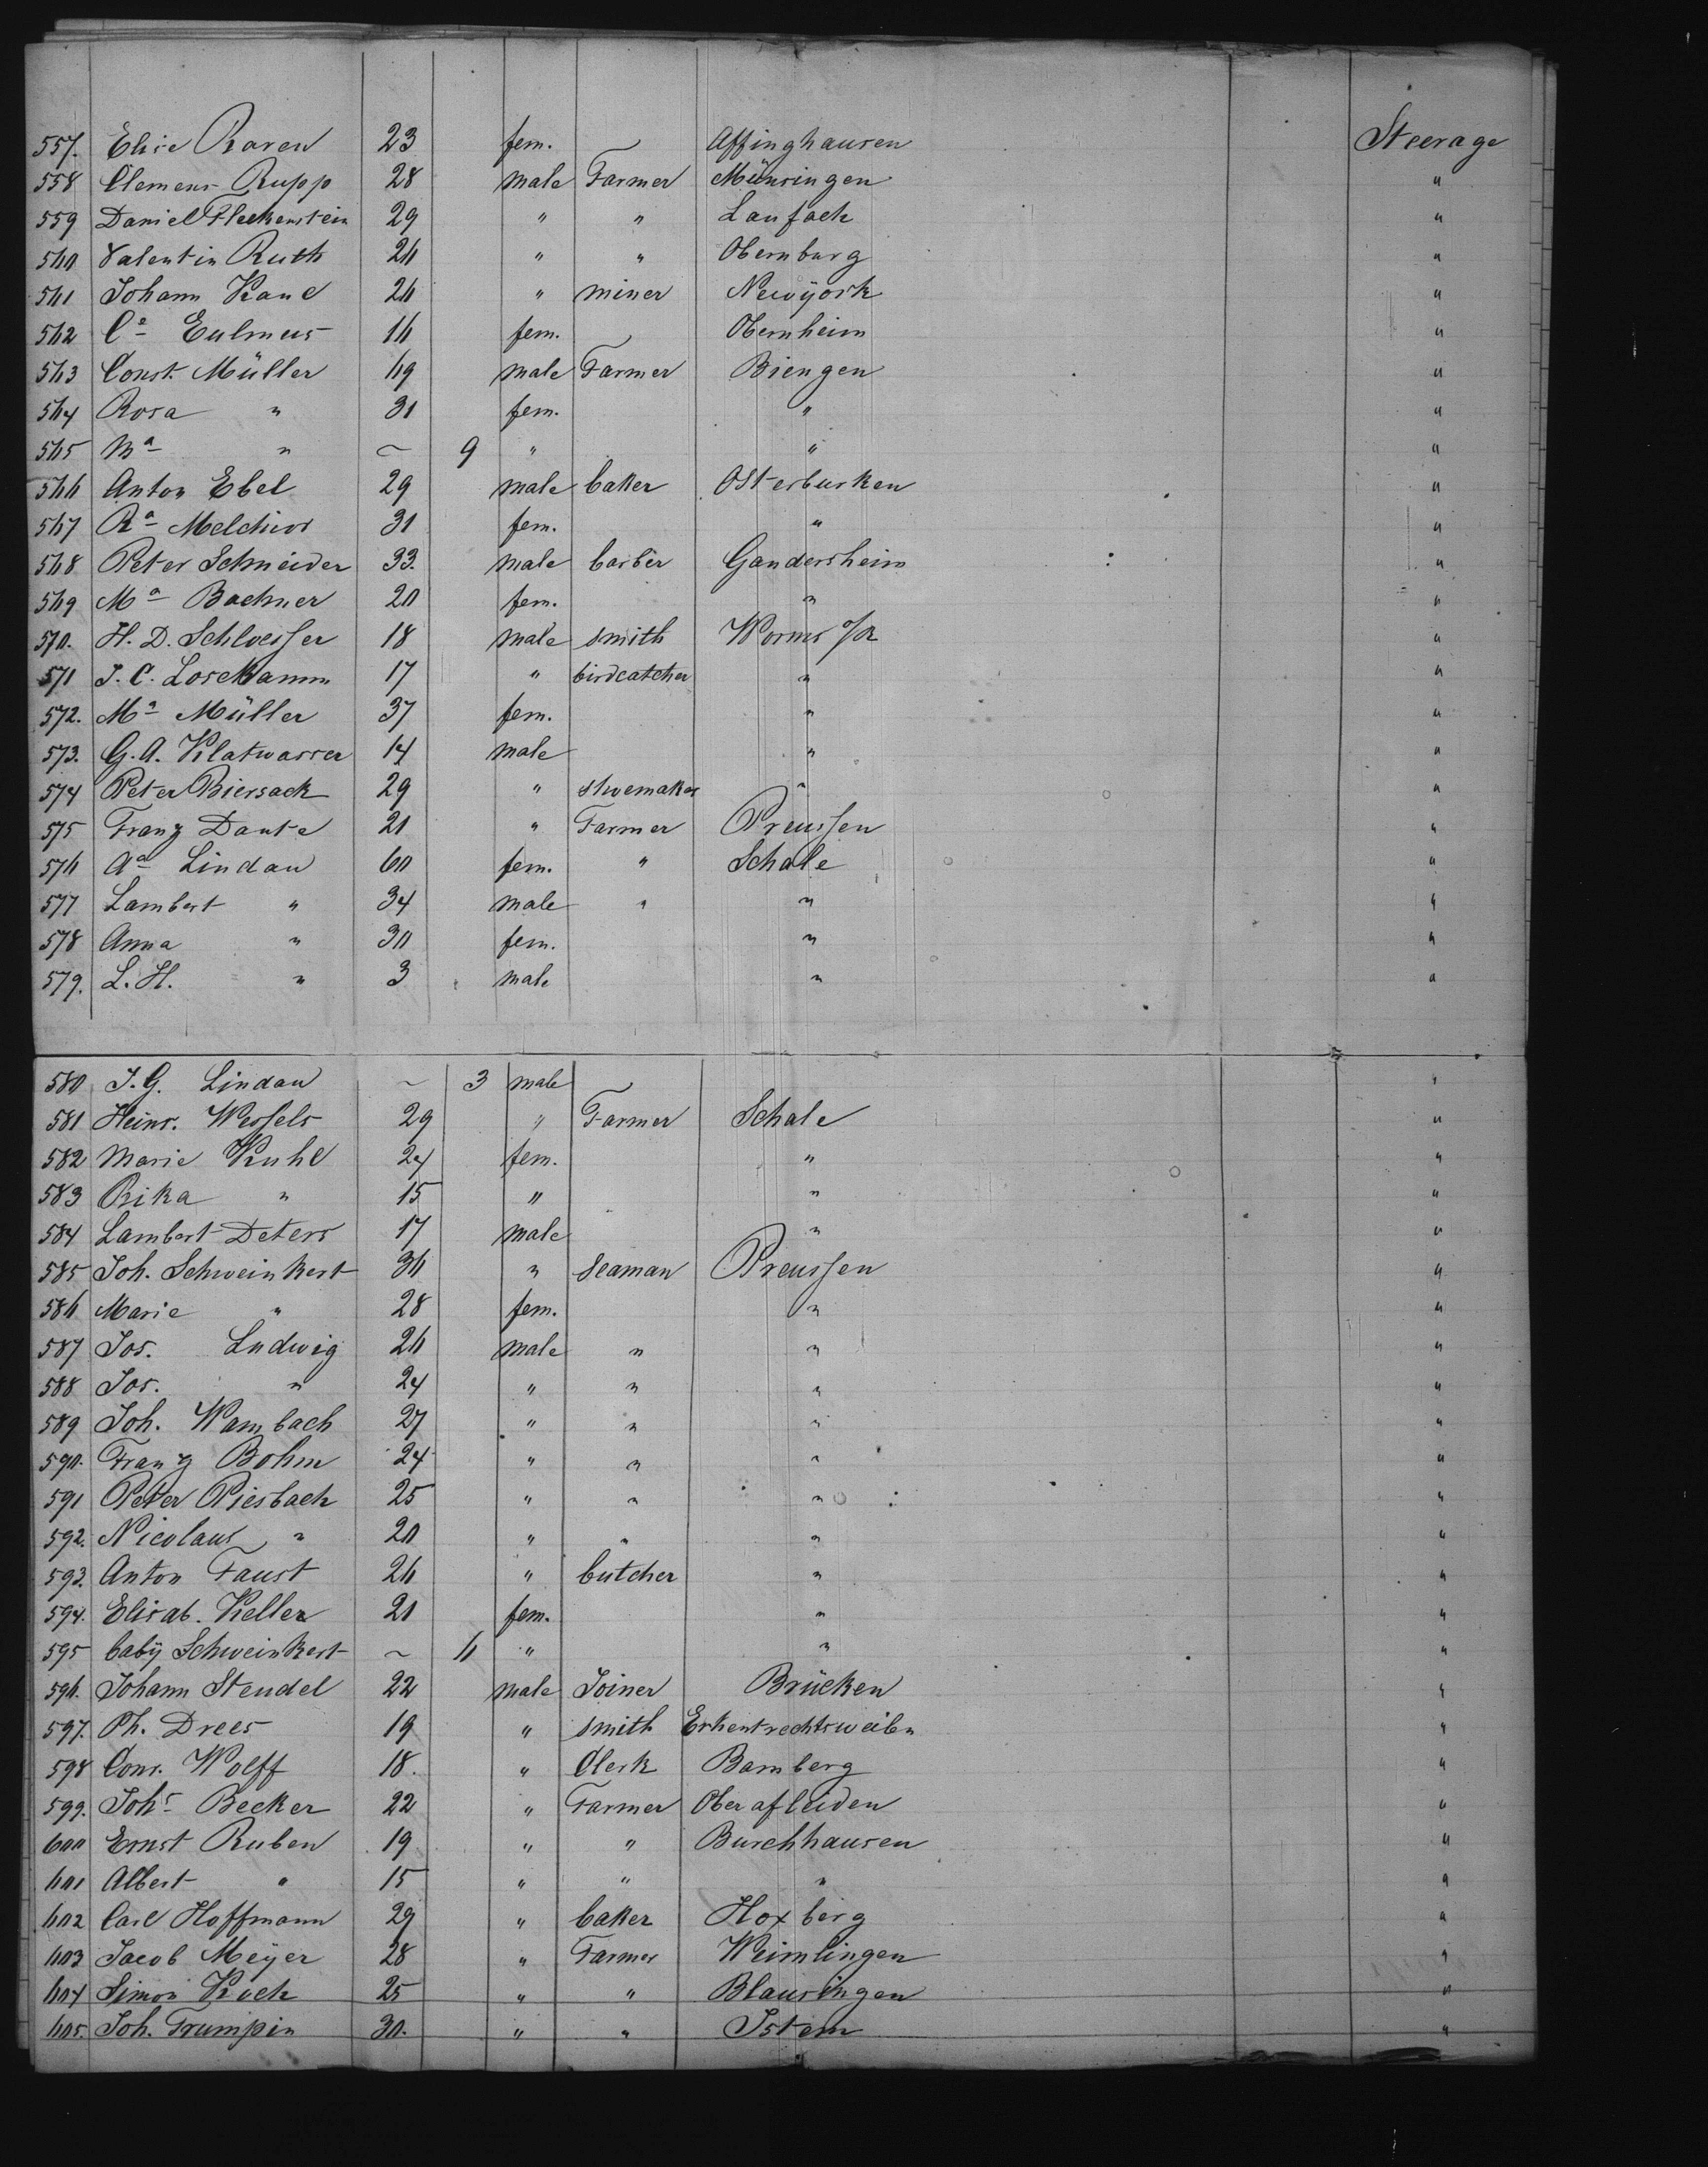 557. Elise Raven 23 fem. Affinghausen Steerage
558 Clemens Rupp 28 male Farmer Münsingen "
559 Daniel Fleckenstein 29 " " Laufach "
560 Valentin Ruth 26 " " Obernburg "
561 Johann Kane 26 " miner Newÿork "
562 Ca Eulmeus 16 fem. Obernheim "
563 Const. Müller 69 male Farmer Biengen "
564 Rosa " 31 fem. " "
565 Ma " ~ 9 " " "
566 Anton Ebel 29 male baker Osterburken "
567 Ra Melchior 31 fem. " "
568 Peter Schneider 33. male barber Gandersheim "
569 Ma Bachner 20 fem. " "
570. H. D. Schloesser 18 male smith Worms o/R "
571 J. C. Losekamm 17 " birdcatcher " "
572. Ma Müller 37 fem. " "
573. G. A. Klatwasser 14 male " "
574 Peter Biersack 29 " shoemaker " "
575 Franz Dante 21 " Farmer Preussen "
576 Aa Lindau 60 fem. " Schale "
577 Lambert " 34 male " " "
578 Anna " 30 fem. " "
579. L. H. " 3 male " "
580 J. G. Lindau ~ 3 male "
581 Heinr. Wessels 29 " Farmer Schale "
582 Marie Kuhl 24 fem. " "
583 Rika " 15 " " "
584 Lambert Deters 17 male " "
585 Joh. Schweinkert 36 " seaman Preussen "
586 Marie " 28 fem. " "
587 Jos. Ludwig 26 male " " "
588 Jos. " 24 " " " "
589 Joh. Wambach 27 " " " "
590. Franz Bohm 24 " " " "
591 Peter Piesbach 25 " " " "
592. Nicolaus " 20 " " " "
593. Anton Faust 26 " butcher " "
594. Elisab. Keller 21 fem. " "
595 baby Schweinkert ~ 6 " " "
596. Johann Steudel 22 male Joiner Brücken "
597. Ph. Drees 19 " smith "
598 Conr. Wolff 18. " Clerk Bamberg "
599. Johs Becker 22 " Farmer Oberafleiden "
600 Ernst Ruben 19 " " Burchhausen "
601 Albert " 15 " " " "
602 Carl Hoffmann 29 " baker Hoxberg "
603 Jacob Meÿer 28 " Farmer Weimlingen "
604 Simon Koch 25 " " Blausingen "
605. Joh. Trumpin 30. " " Istem "